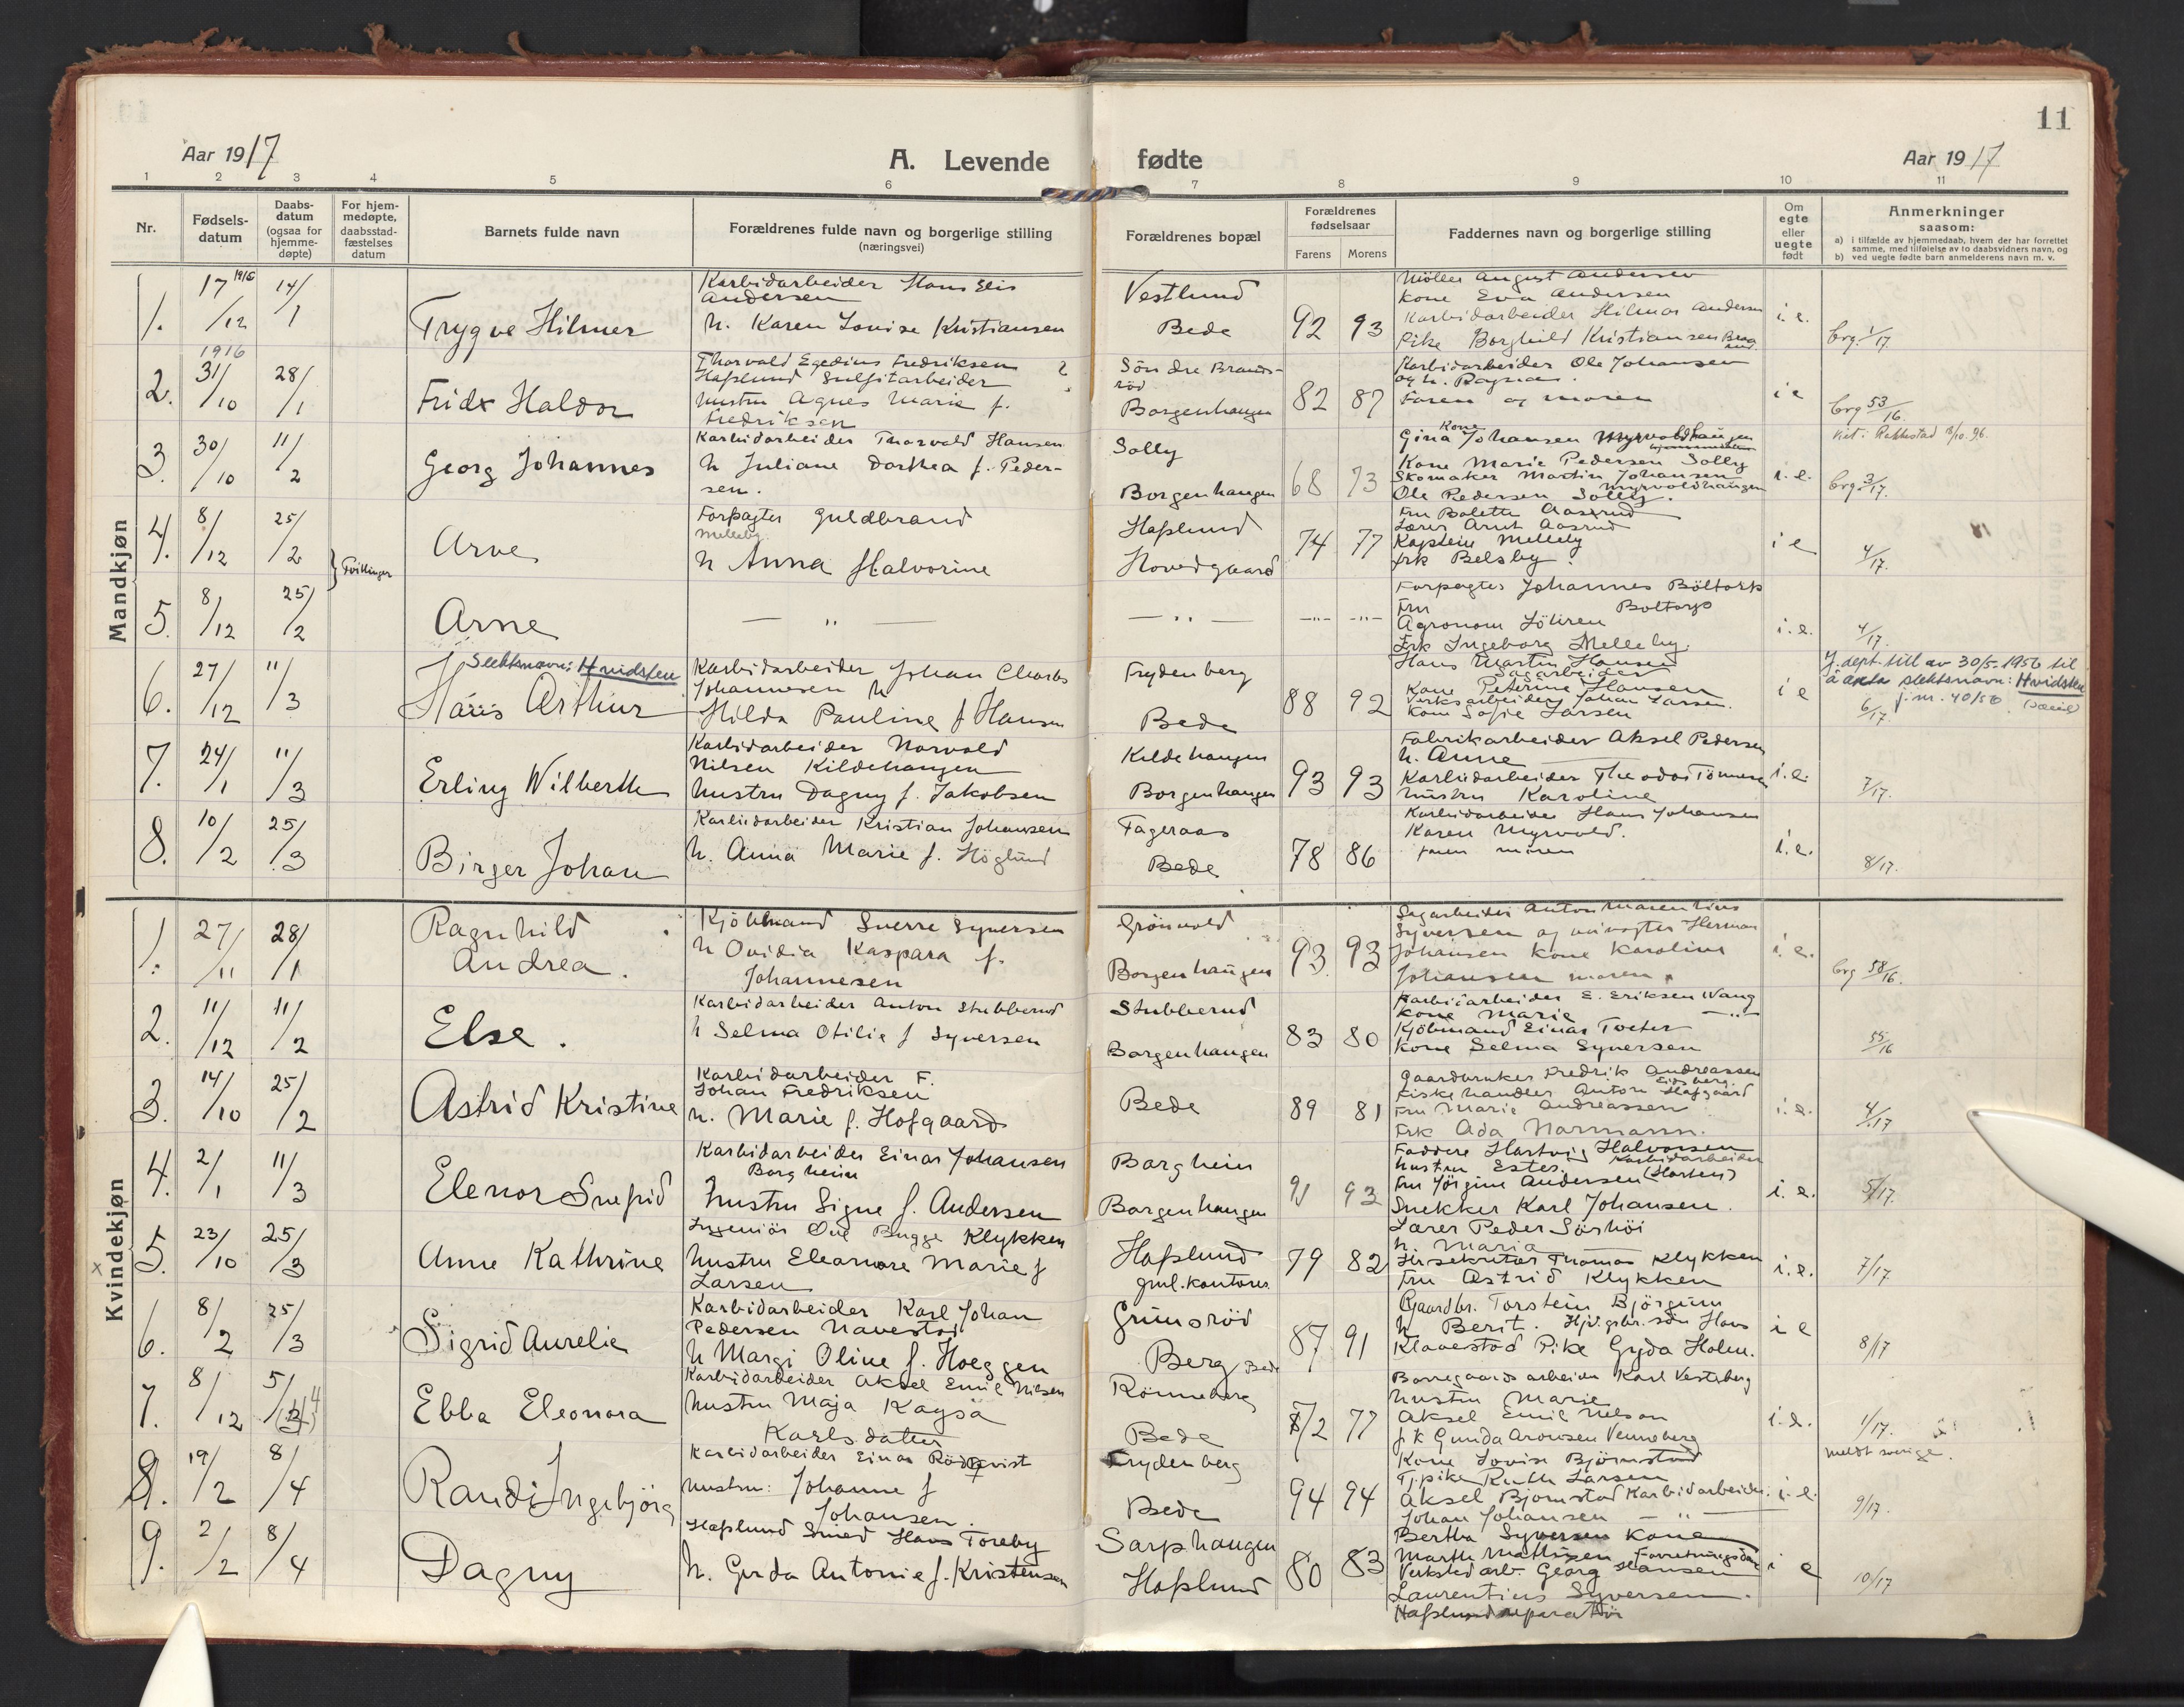 11
Aar 1917
A. Levende fødte
Aar 1917
1 2 3 4 5 6 7 8 9 10 11
Nr.
Fødsels-
datum
Daabs-
datum
(ogsaa for
hjemme-
døpte)
For hjem-
medøpte,
daabsstad-
fæstelses
datum
Barnets fulde navn
Forældrenes fulde navn og borgerlige stilling
(næringsvei)
Forældrenes bopæl
Forældrenes
fødselsaar
Farens Morens
Faddernes navn og borgerlige stilling
Om
egte
eller
uegte
født
Anmerkninger
saasom:
a) i tilfælde av hjemmedaab, hvem der har forrettet
samme, med tilføielse av to daabsvidners navn, og
b) ved uegte fødte barn anmelderens navn m. v.
Mandkjøn
1. 17/12 1916 14/1
Trygve Hilmer
Karbidarbeider Hans Elis
Andersen
h. Karen Lovise Kristiansen
Vestlund
Bede
92 93
Møller August Andersen
Kone Eva Andersen
Karbidarbeider Hilmar Andersen
Pike Borghild Kristiansen
i. e.
brg. 1/17.
2. 1916 31/10 28/1
Fridx Haldor
Thorvald Egedius Fredriksen
Hafslund Sulfitarbeider
hustru Agnes Marie f.
Fredriksen
Søndre Brands-
rød
Borgenhaugen
82 87
Karbidarbeider Ole Johansen
og h. Ragna.
Faren og moren
i e
brg 53/16.
3. 30/10 11/2
Georg Johannes
Karbidarbeider Thorvald Hansen
h Juliane Dorthea f. Peder-
sen.
Solly
Borgenhaugen
68 73
Kone
Gina Johansen Myrvoldhaugen
Kone Marie Pedersen Solly
Skomaker Martin Johansen
Myrvoldhaugen
Ole Pedersen Solly.
i. e.
vict. Rakkestad 8/10. 96.
brg. 3/17.
4. 8/12 25/2
} Tvillinger
Arve
Forpagter Guldbrand
Melleby
h Anna Halvorine
Hafslund
Hovedgaard
74 77
Fru Bolette Aasrud
Lærer Arnt Aasrud
Kaptein Melleby
frk Belsby.
i e
4/17.
5. 8/12 25/2
Arne
— " —
— " —
—"— —"—
Forpagter Johannes Böltorp
Fru Boltorp
Agronom
Frk Ingeborg Melleby.
i. e.
4/17.
6. 27/12 11/3
Slektsnavn: Hvidsten
Hans Arthur
Karbidarbeider Johan Charles
Johannesen h
Hilda Pauline f Hansen
Frydenberg
Bede
88 92
Hans Martin Hansen
Sagarbeider
Kone Petrine Hansen
Verksarbeider Johan Larsen.
Kone Sofie Larsen
i e
J. dept. till av 30/5-1956 til
å anta slektsnavn: Hvidsten
j. nr. 40/56
6/17.
7. 24/1 11/3
Erling Wilberth
Karbidarbeider Norvald
Nilsen Kildehaugen
hustru Dagny f. Jakobsen
Kildehaugen
Borgenhaugen
93 93
Fabrikarbeider Aksel Pedersen
h. Anne
Karbidarbeider Theodor Tönnesen
hustru Karoline
i. e.
7/17.
8. 10/2 25/3
Birger Johan
Karbidarbeider Kristian Johansen
h. Anna Marie f. Höglund
Fageraas
Bede
78 86
Karbidarbeider Hans Johansen
Karen Myrvold.
faren moren
i. e.
8/17.
Kvindekjøn
1. 27/11 28/1
Ragnhild
Andrea.
Kjöbmand Sverre Syversen
h Ovidia Kaspara f.
Johannesen
Grönvold
Borgenhaugen
93. 93
Sagarbeider Anton Marentius
Syversen og Herman
Johansen Kone Karoline
Johansen moren
i. e.
brg 58/16.
2. 11/12 11/2
Else.
Karbidarbeider Anton Stubberud
h Selma Otilie f Syversen
Stubberud
Borgenhaugen
83 80
Karbidarbeider E. Eriksen Wang
Kone Marie —"—
Kjöbmand Einar Tveter
Kone Selma Syversen
55/16
3. 14/10 25/2
Astrid Kristine
Karbidarbeider F.
Johan Fredriksen
h. Marie f. Hofgaard
Bede
89 81
Gaardbruker Fredrik Andreassen
Eidsberg.
Fiskehandler Anton Hofgaard
Fru Marie Andreassen
Frk Ada Normann.
i. e.
4/17
4. 2/1 11/3
Elenor Snefrid
Karbidarbeider Einar Johansen
Borgheim
hustru Signe f. Andersen
Borgheim
Borgenhaugen
91 93
Faddere Hartvig Halvorsen
Karbidarbeider
hustru Ester.
Fru Jörgine Andersen (Horten)
Snekker Karl Johansen.
i. e.
5/17
x 5. 23/10 25/3
Anne Kathrine
Ingeniör Ove Bugge Klykken
hustru Eleanore Marie f
Larsen
Hafslund
gml. kontorer
79 82
Lærer Peder Sörhöi
h. Maria
Hr sekretær Thomas Klykken
Fru Astrid Klykken
i. e.
7/17
6. 8/2 25/3
Sigrid Aurelie
Karbidarbeider Karl Johan
Pedersen Navestad
h Margi Oline f. Hoeggen
Grimsröd
Berg Bede
87 91
Gaardbr. Torstein Björgum
h Berit. Hjv. gbr. sön Hans
Klavestad Pike Gyda Holm.
i e
8/17
7. 8/12 5/4
Ebba Eleonora
Karbidarbeider Aksel Emil Nilsen
hustru Maja Kaysa
Karlsdatter
Rönneberg
Bede
72 77
Borregaards arbeider Karl Vestaberg
hustru Marie
Aksel Emil Nelson
fk Gunda Aronsen Venneberg
i. e.
1/17.
meldt sverige.
8. 19/2 8/4
Randi Ingebjörg
Karbidarbeider Einar Rödqvist
hustru: Johanne f
Johansen.
Frydenberg
Bede
94 94
Kone Lovise Björnstad
Tj. pike Ruth Larsen
Aksel Bjornstad Karbidarbeider.
Johan Johansen — " —
i. e.
9/17.
9. 2/2 8/4
Dagny
Hafslund Smed Hans Toreby
h. Gerda Antonie f. Kristensen
Sarphaugen
Hafslund
80 83
Bertha Syversen Kone
Marth Mathisen
Verksted arb. Georg Hansen
Laurentius Syversen.
Hafslund reparatör
i e
10/17